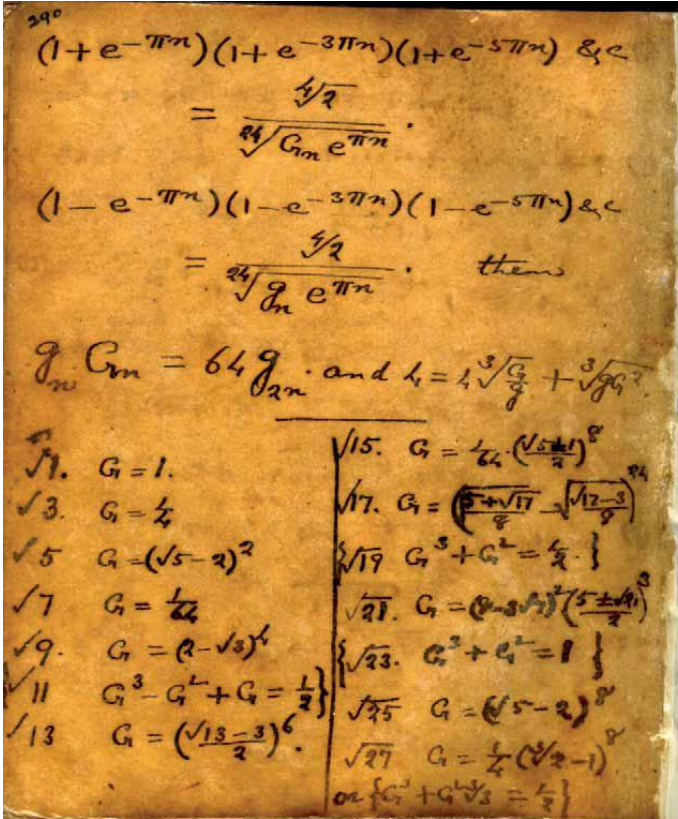 290
(1+e^{-πn})(1+e^{-3πn})(1+e^{-5πn}) &c
= ∜2 / ²⁴√(G_n e^{πn}).
(1-e^{-πn})(1-e^{-3πn})(1-e^{-5πn}) &c
= ∜2 / ²⁴√(g_n e^{πn}). then
g_n G_n = 64 g_{2n}. and
√1. G = 1.
√3. G = 1/4
√5 G = (√5-2)^2
√7 G = 1/64
√9. G = (2-√3)^4
√11 G^3 - G^2 + G = 1/2}
√13 G = ((√13-3)/2)^6.
√15. G = 1/64 · ( )^8
√17. G = (√((5+√17)/8) - √((√17-3)/8))^{24}
{√19 G^3 + G^2 = 1/2.}
√21. G =
{√23. G^3 + G^2 = 1}
√25 G = (√5-2)^8
√27 G = 1/4 (∛2-1)^8
or